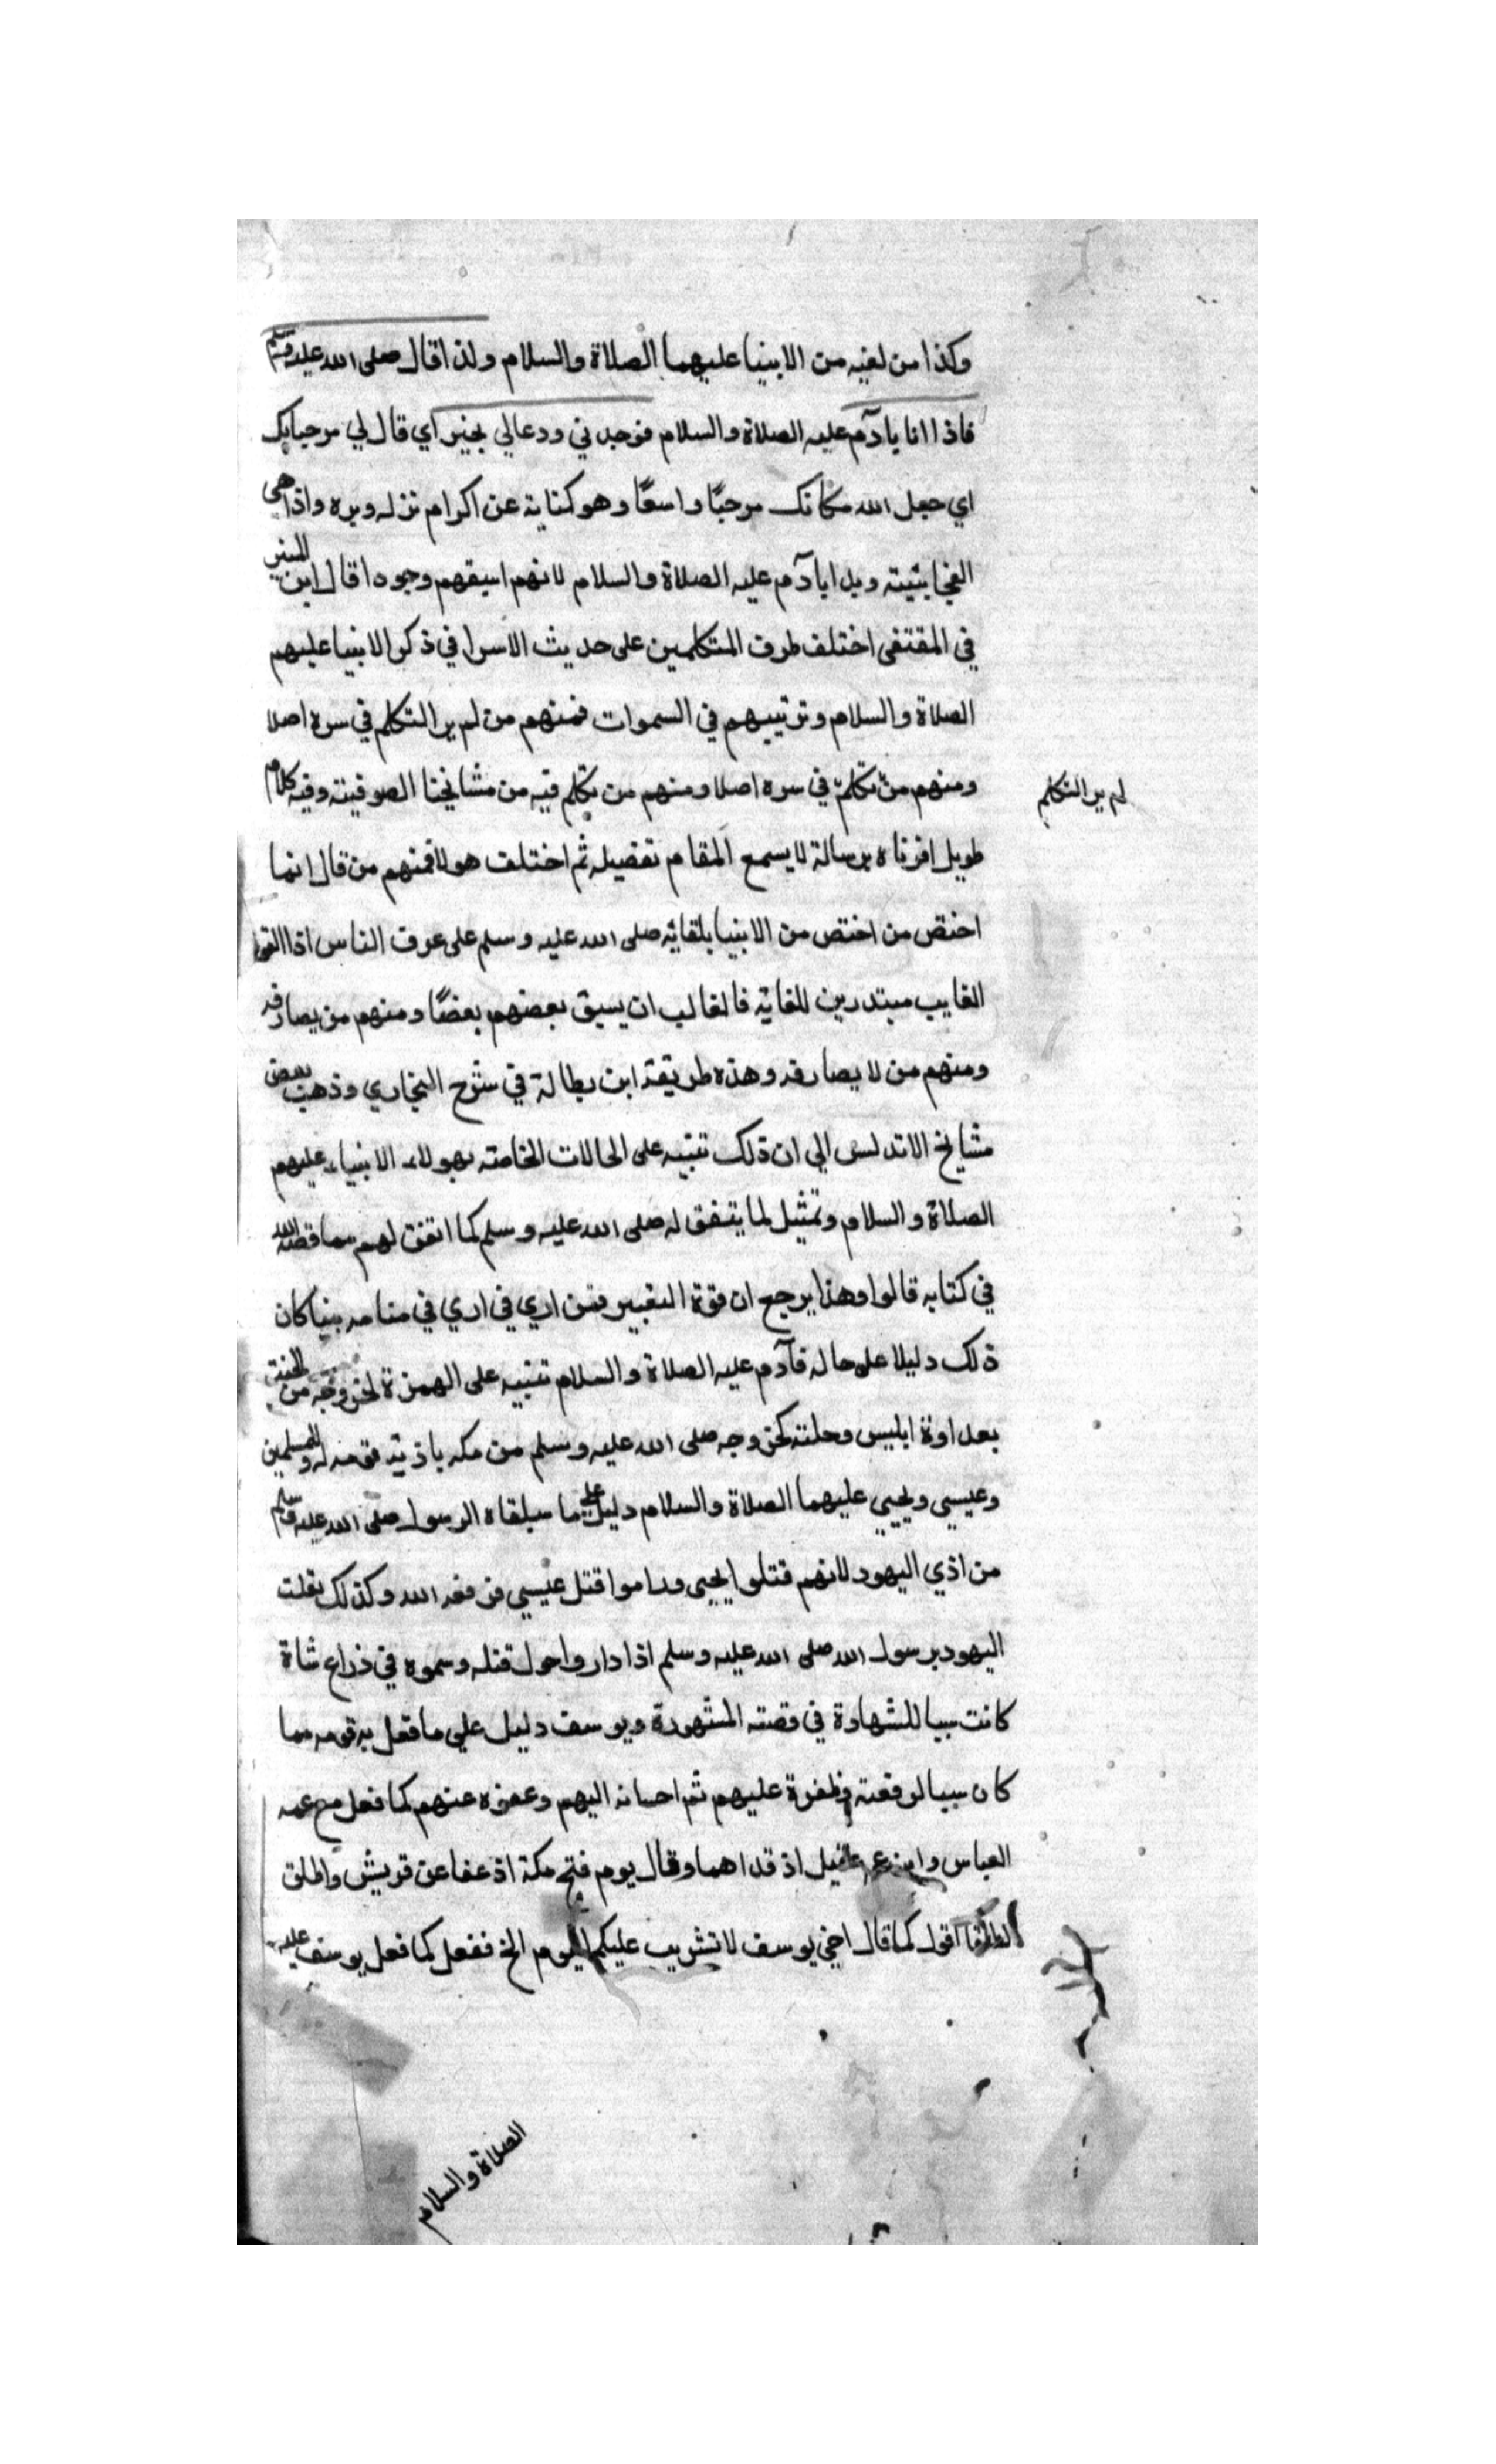 وكذا من لقيه من الانبيا عليهما الصلاة والسلام ولذا قال صلى الله عليه وسلم
فاذا انا بآدم عليه الصلاة والسلام فرحب بي ودعا لي بخير اي قال لي مرحبا بك
اي جعل الله مكانك مرحبًا واسعًا وهو كناية عن اكرام نزله وبره واذا هي
الفجايئية وبدا بآدم عليه الصلاة والسلام لانهم اسبقهم وجودا قال ابن المنير
في المقتفى اختلف طرف المتكلمين على حديث الاسرا في ذكر الانبيا عليهم
الصلاة والسلام وترتيبهم في السموات فمنهم من لم ير التكلم في سره اصلا
ومنهم من تكلم في سره اصلا ومنهم من تكلم فيه من مشايخنا الصوفية وفيه كلام
لم ير التكلم
طويل افرزناه برسالة لا يسمع المقام تفضيله ثم اختلف هولا فمنهم من قال انما
اختص من اختص من الانبيا بلقائه صلى الله عليه وسلم على عرف الناس اذا القوا
الغايب مبتدرين للقائه فالغالب ان يسبق بعضهم بعضًا ومنهم من يصادفه
ومنهم من لا يصادفه وهذه طريقة ابن بطالة في شرح البخاري وذهب بعض
مشايخ الاندلس الي ان ذلك تنبيه على الحالات الخاصة بهولاء الانبياء عليهم
الصلاة والسلام وتمثيل لما يتفق له صلى الله عليه وسلم كما اتفق لهم مما قصه الله
في كتابه قالوا وهذا يرجع ان قوة التعبير فمن اري في اري في منامه بنيا كان
ذلك دليلا على حاله فآدم عليه الصلاة والسلام تنبيه على الهمزة لخروجه من الجنة
بعداوة ابليس وحلته كخروجه صلى الله عليه وسلم من مكه باذية قومه له وللمسلمين
وعيسى ويحيي عليهما الصلاة والسلام دليل على ما سيلقاه الرسول صلى الله عليه وسلم
من اذي اليهود لانهم قتلوا يحيى وراموا قتل عيسي فرفعه الله وكذلك نقلت
اليهود برسول الله صلى الله عليه وسلم اذا داروا حول قتله وسموه في ذراع شاة
كانت سببا للشهادة في قصته المشهورة ويوسف دليل علي ما فعل به قومه مما
كان سببا لوقعته وظفرة عليهم ثم احسانه اليهم وعفوه عنهم كما فعل مع عمه
العباس وابن عمه عقيل اذ قداهما وقال يوم فتح مكة اذ عفا عن قريش واطلق
الطلقا اقول كما قال اخي يوسف لا تثريب عليكم اليوم الخ ففعل كما فعل يوسف عليه
الصلاة والسلام